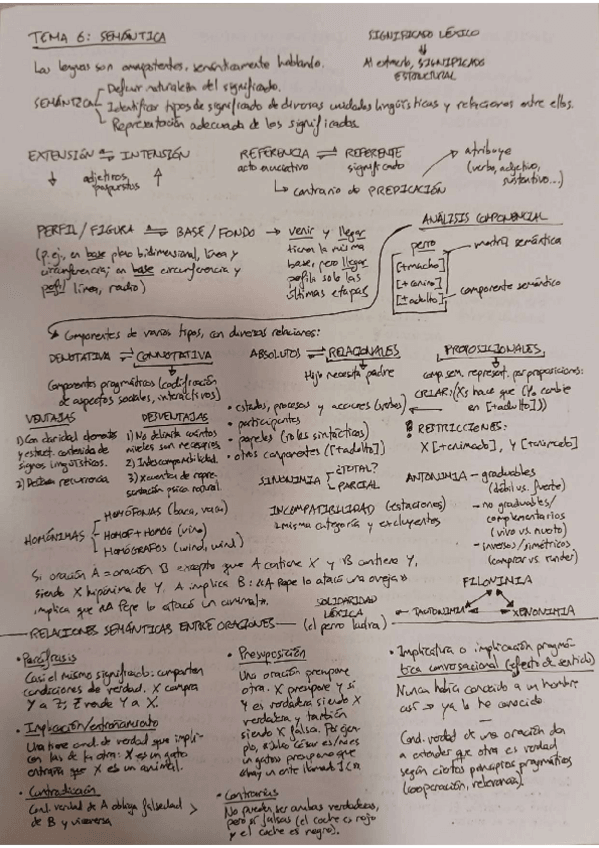 TEMA 6: SEMÁNTICA
SIGNIFICADO LÉXICO
Las lenguas son omnipotentes, semánticamente hablando.
Al extremo, SIGNIFICADO
ESTRUCTURAL
SEMÁNTICA
Definir naturaleza del significado.
Identificar tipos de significado de diversas unidades lingüísticas y relaciones entre ellos.
Representación adecuada de los significados.
EXTENSIÓN ⇌ INTENSIÓN
↓ adjetivos, ↑
REFERENCIA ⇌ REFERENTE
acto enunciativo significado
↳ contrario de PREDICACIÓN
atribuye
(verbo, adjetivo,
sustantivo...)
PERFIL/FIGURA ⇌ BASE/FONDO → venir y llegar
(p. ej., en base plano bidimensional, línea y
circunferencia; en base circunferencia y
perfil línea, radio)
tienen la misma
base, pero llegar
perfila solo las
últimas etapas
ANÁLISIS COMPONENCIAL
perro
matriz semántica
[+macho]
[+canino]
[±adulto]
componente semántico
Componentes de varios tipos, con diversas relaciones:
DENOTATIVA ⇌ CONNOTATIVA
Componentes pragmáticos (codificación
de aspectos sociales, interactivos)
ABSOLUTOS ⇌ RELACIONALES
Hijo necesita padre
• estados, procesos y acciones (verbos)
• participantes
• papeles (roles sintácticos)
• otros componentes ([±adulto])
PROPOSICIONALES
comp. sem. represent. por proposiciones:
CRIAR: (X hace que (Y cambie
en [+adulto]))
! RESTRICCIONES:
X [+animado], Y
VENTAJAS
1) Con claridad elementos
y estruct. contenido de
signos lingüísticos.
2) recurrencia
DESVENTAJAS
1) No delimita cuántos
niveles son necesarios
2) Incomparabilidad
3) de repre-
sentación psico. natural.
SINONIMIA
¿TOTAL?
PARCIAL
ANTONIMIA
– graduables
(débil vs. fuerte)
– no graduables/
complementarios
(vivo vs. muerto)
– inversos/simétricos
(comprar vs. vender)
INCOMPATIBILIDAD (estaciones)
misma categoría y excluyentes
HOMÓNIMAS
HOMÓFONAS (baca, vaca)
HOMOF + HOMOG (vino)
HOMÓGRAFOS (wind, wind)
Si oración A = oración B excepto que A contiene X y B contiene Y,
siendo X hipónima de Y, A implica B: «A Pepe lo atacó una oveja»
implica que «A Pepe lo atacó un animal».
FILONIMIA
TAXONIMIA
XENONIMIA
SOLIDARIDAD
LÉXICA
(el perro ladra)
RELACIONES SEMÁNTICAS ENTRE ORACIONES
• Paráfrasis
Casi el mismo significado: comparten
condiciones de verdad. X compra
Y a Z; Z vende Y a X.
• Implicación/entrañamiento
Una tiene cond. de verdad que impli-
can las de la otra: X es un gato
entraña que X es un animal.
• Contradicción
Cond. verdad de A obliga falsedad
de B y viceversa
• Presuposición
Una oración presupone
otra. X presupone Y si
Y es verdadera siendo X
verdadera y también
siendo X falsa. Por ejem-
plo, César es/no es
un presupone que
hay un ente llamado
• Contrarias
No pueden ser ambas verdaderas,
pero sí falsas (el coche es rojo
y el coche es negro).
• Implicatura o implicación pragmá-
tica conversacional (efecto de sentido)
Nunca había conocido a un hombre
así → ya lo he conocido
Cond. verdad de una oración da
a entender que otra es verdad
según ciertos principios pragmáticos
(cooperación, relevancia).